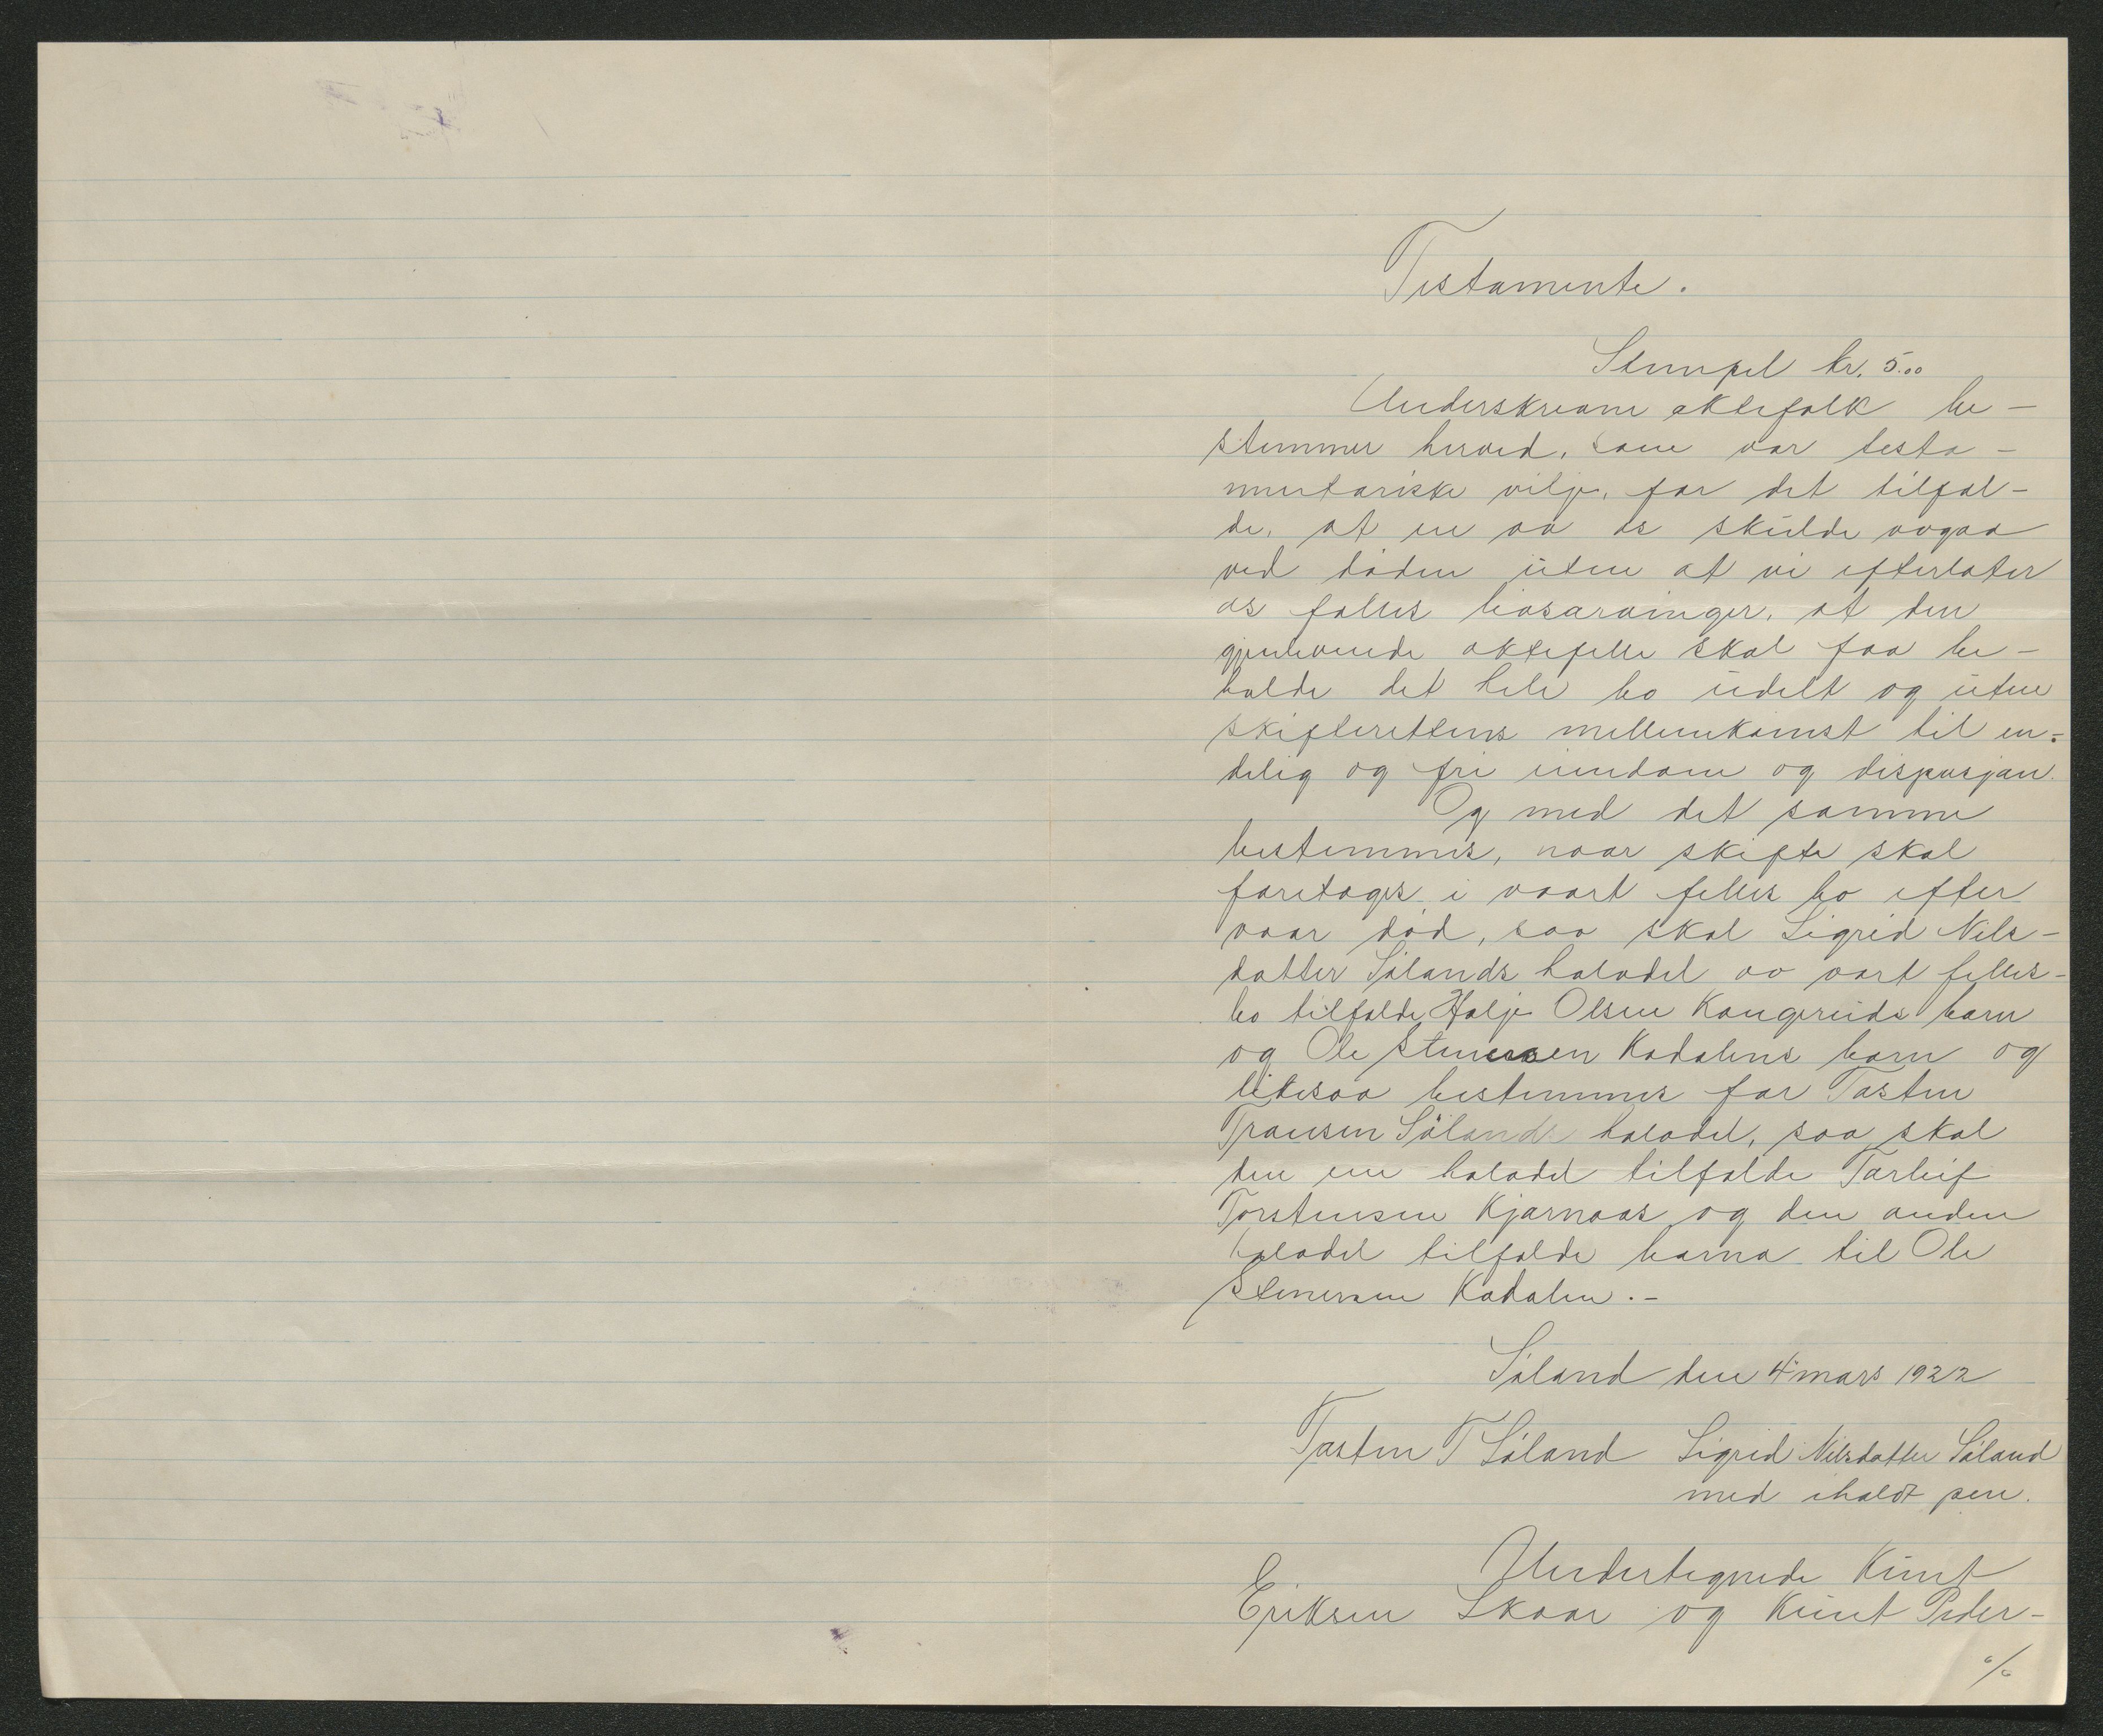 Testamente.
Stempel kr. 5.00
Underskrevne ektefolk be-
stemmer herved, som vor testa-
mentariske vilje, for det tilfæl-
de, at en av os skulde avgaa
ved døden uten at vi efterlater
os fælles livsarvinger, at den
gjenlevende ektefelle skal faa be-
holde det hele bo udelt og uten
skifterettens mellemkomst til en-
delig og fri eiendom og disposjon.
Og med det samme
bestemmes, naar skifte skal
foretages i vaart felles bo efter
vaar død, saa skal Sigrid Nils-
datter Sølands halvdel av vort felles-
bo tilfalde Holje Olsen Kongsruds barn
og Ole Stenersen Kadalens barn og
likesaa bestemmes for Tosten
Traasen Sølands halvdel, saa skal
den ene halvdel tilfalde Torleif
Torstensen Kjørnaas og den anden
halvdel tilfalde barna til Ole
Stenersen Kadalen.-
Søland den 4 mars 1922
Tosten T Søland Sigrid Nilsdatter Søland
med iholdt pen.
Undertegnede Knut
Eriksen Skaar og Knut Peder-
%